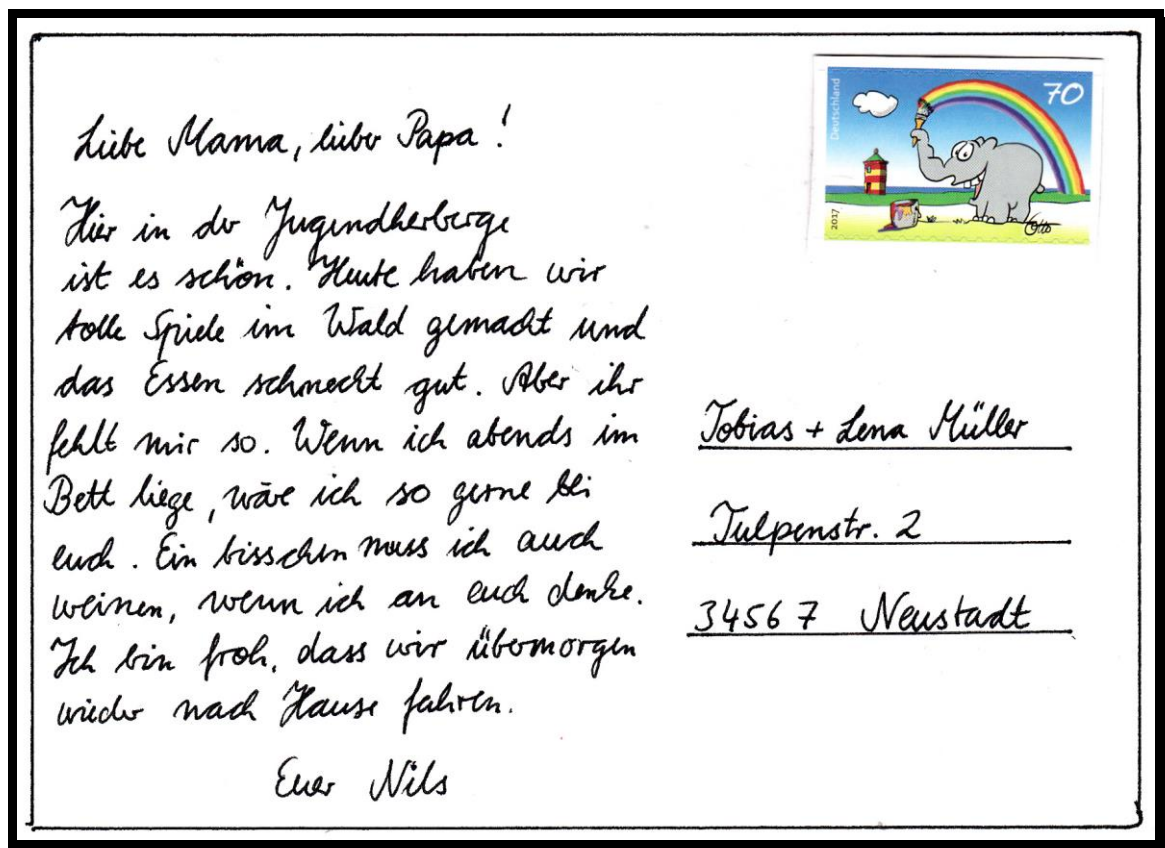 Liebe Mama, lieber Papa!
Hier in der Jugendherberge
ist es schön. Heute haben wir
tolle Spiele im Wald gemacht und
das Essen schmeckt gut. Aber ihr
fehlt mir so. Wenn ich abends im
Bett liege, wäre ich so gerne bei
euch. Ein bisschen muss ich auch
weinen, wenn ich an euch denke.
Ich bin froh, dass wir übermorgen
wieder nach Hause fahren.
Euer Nils
Deutschland
70
2017
Otto
Tobias + Lena Müller
Tulpenstr. 2
34567 Neustadt